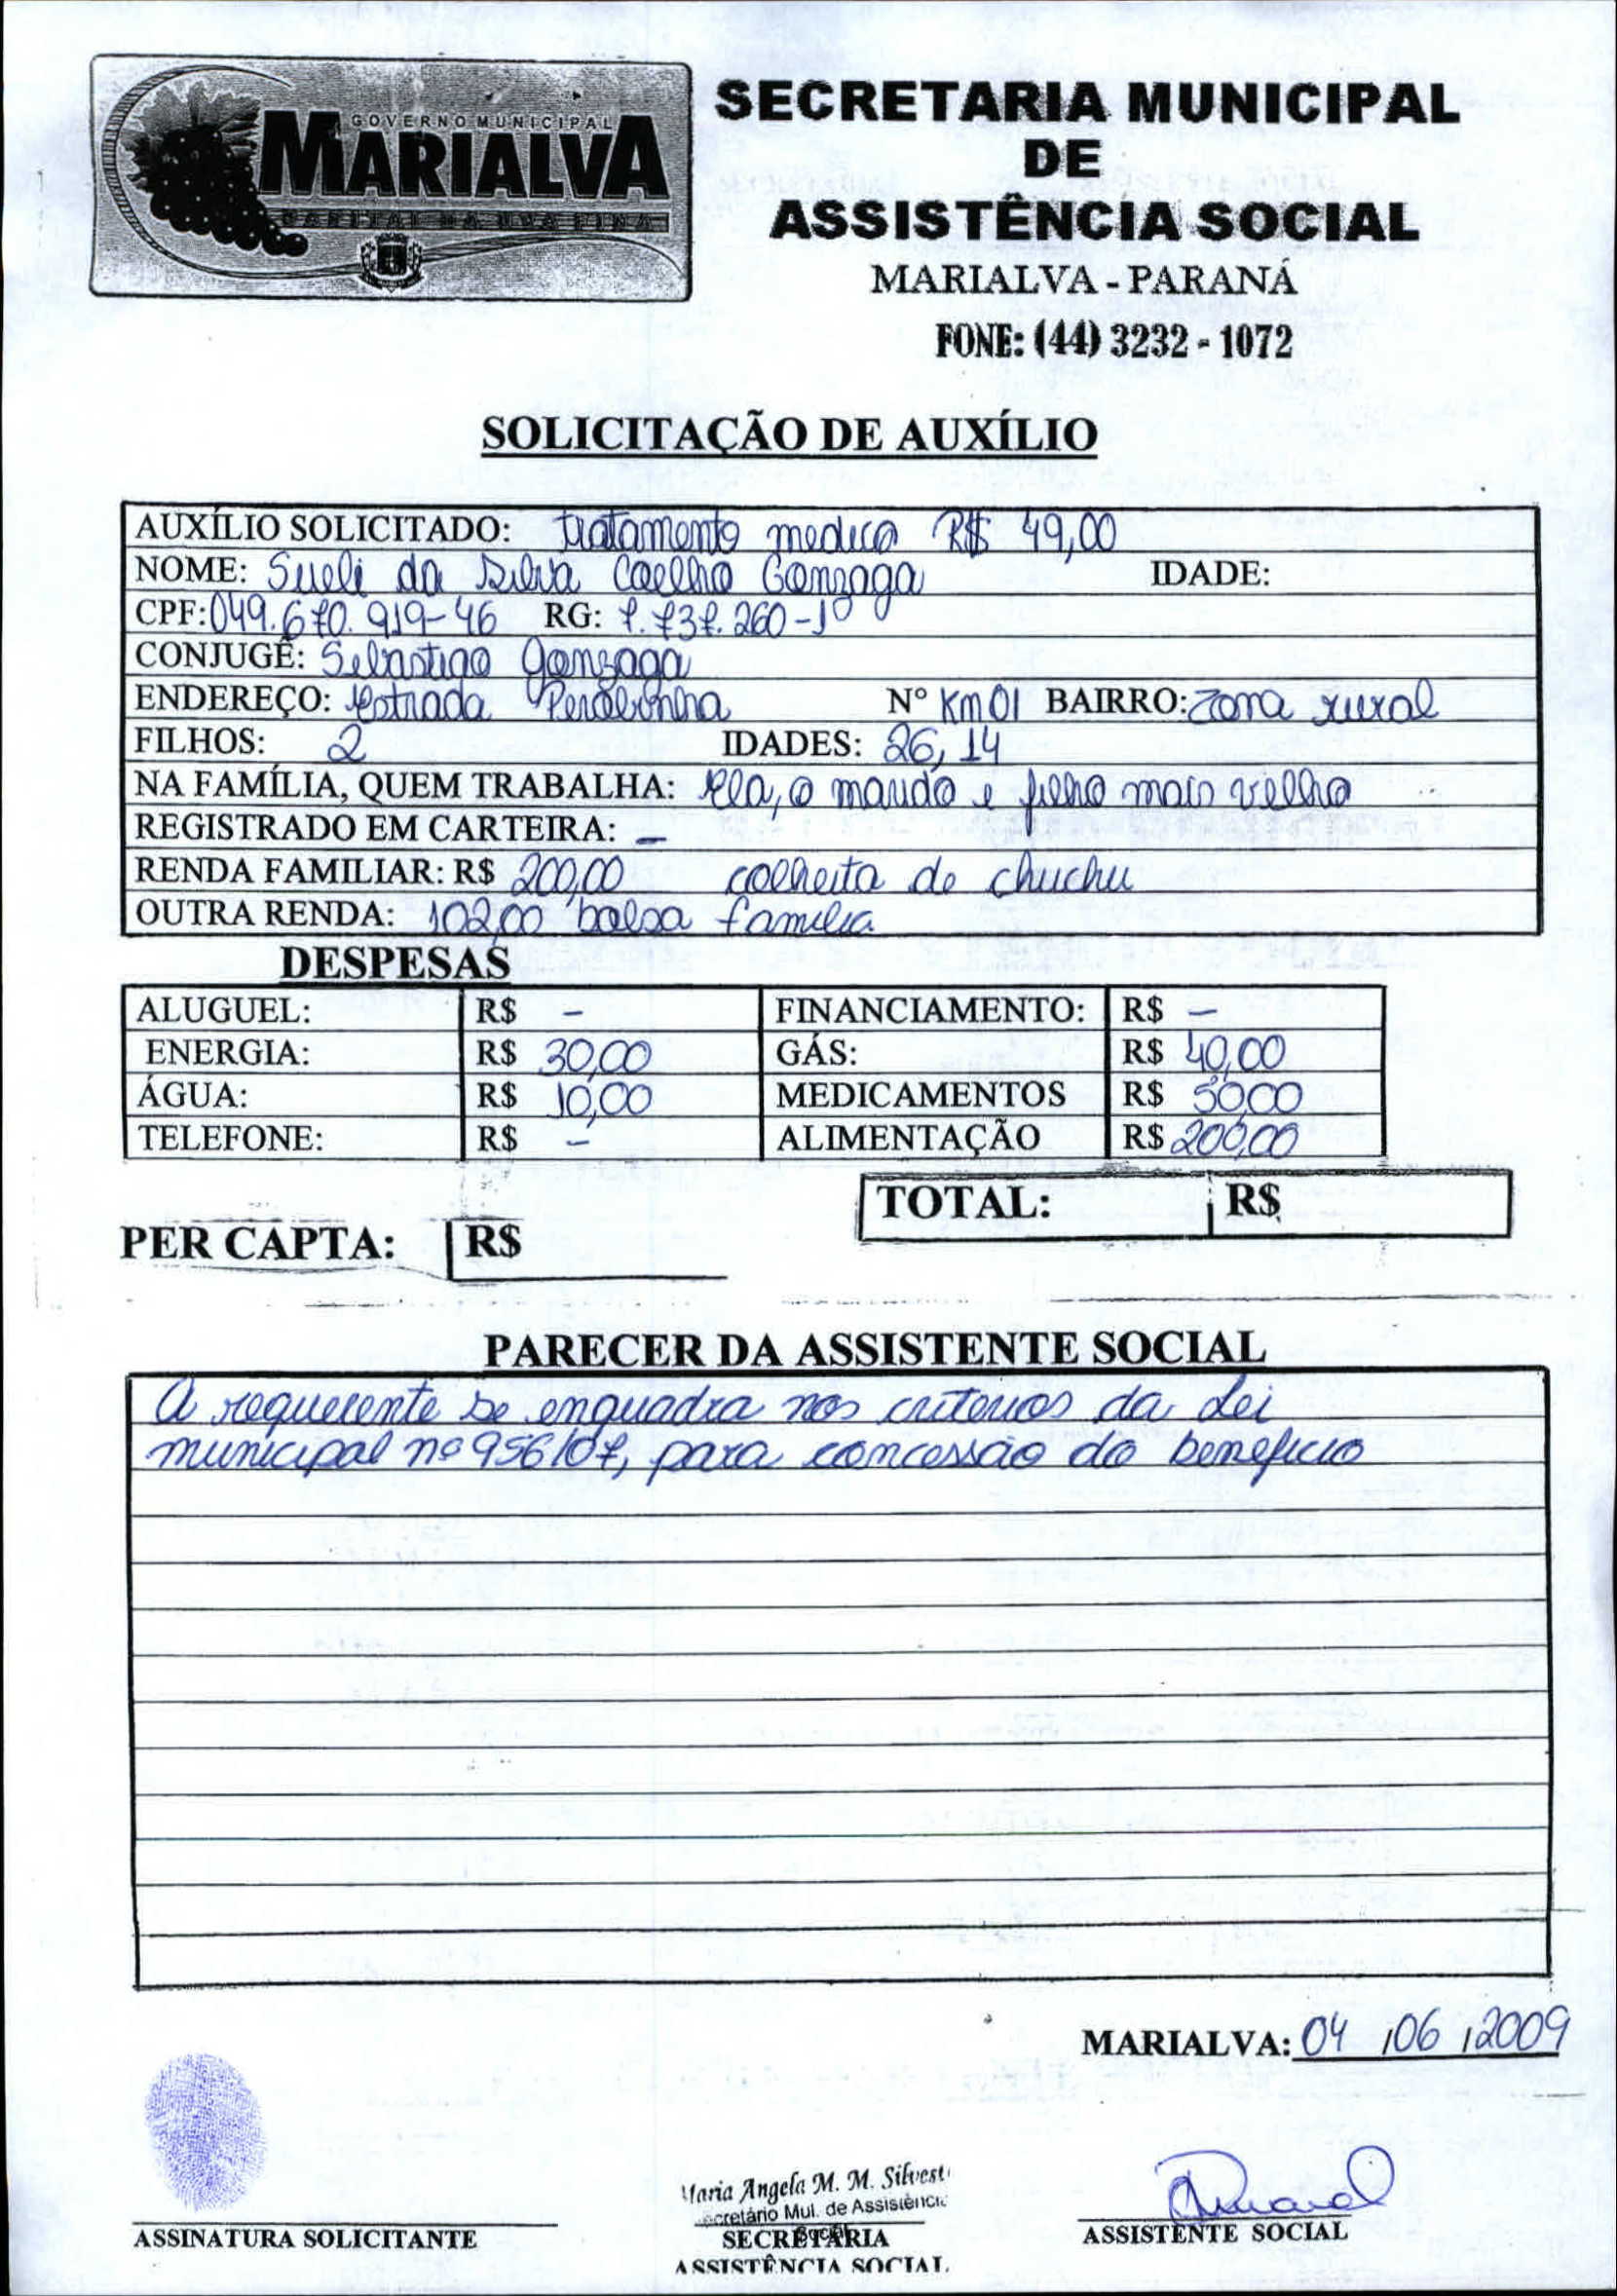 GOVERNO MUNICIPAL
MARIALVA
CAPITAL DA UVA FINA
SECRETARIA MUNICIPAL
DE
ASSISTÊNCIA SOCIAL
MARIALVA - PARANÁ
FONE: (44) 3232 - 1072
SOLICITAÇÃO DE AUXÍLIO
AUXÍLIO SOLICITADO: tratamento medico R$ 49,00
NOME: Sueli da Silva Coelho Gonzaga IDADE:
CPF: 049.670.919-46 RG: 7.737.260-10
CONJUGÊ: Sebastiao Gonzaga
ENDEREÇO: Estrada Nº Km01 BAIRRO: Zona rural
FILHOS: 2 IDADES: 26, 14
NA FAMÍLIA, QUEM TRABALHA: Ela, o marido e filho mais velho
REGISTRADO EM CARTEIRA: –
RENDA FAMILIAR: R$ 200,00 colheita de chuchu
OUTRA RENDA: 102,00 bolsa familia
DESPESAS
ALUGUEL: R$ – FINANCIAMENTO: R$ –
ENERGIA: R$ 30,00 GÁS: R$ 40,00
ÁGUA: R$ 10,00 MEDICAMENTOS R$ 50,00
TELEFONE: R$ – ALIMENTAÇÃO R$ 200,00
TOTAL: R$
PER CAPTA: R$
PARECER DA ASSISTENTE SOCIAL
A requerente se enquadra nos criterios da Lei
municipal nº 956/07, para concessão do beneficio
MARIALVA: 04 /06 /2009
Maria Angela M. M. Silvest
ecretário Mul. de Assistência
Social
ASSINATURA SOLICITANTE SECRETÁRIA ASSISTENTE SOCIAL
ASSISTÊNCIA SOCIAL